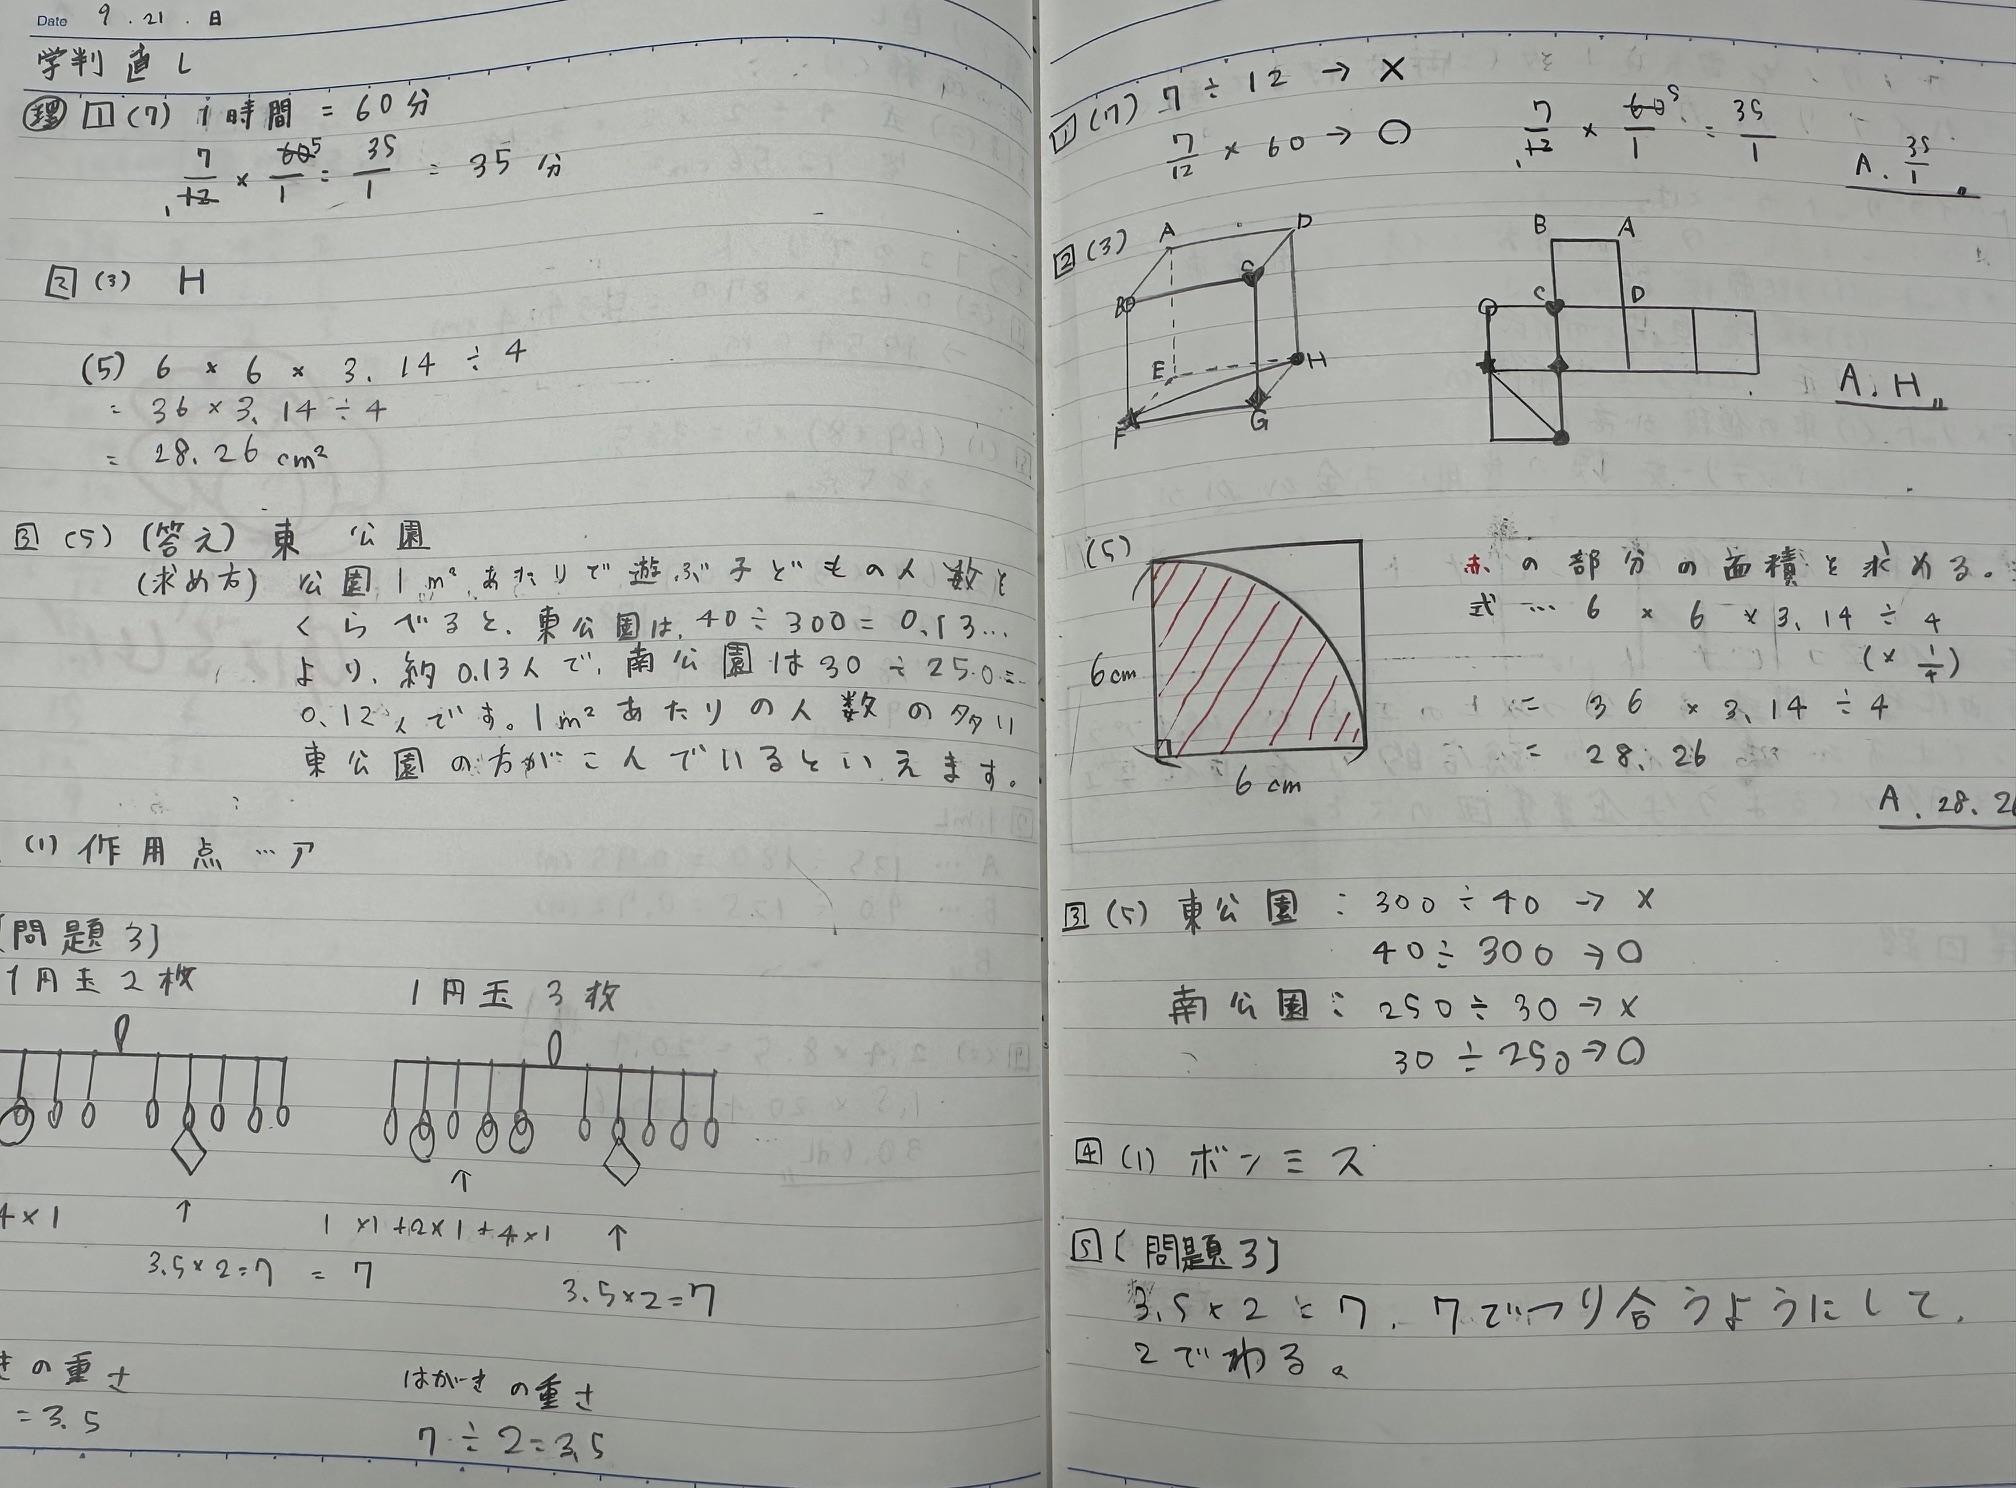 Date 9.21.日
学判直し
理 1 (7) 1時間 = 60分
7/12 × 60/1 5 = 35/1 = 35分
2 (3) H
(5) 6 × 6 × 3.14 ÷ 4
= 36 × 3.14 ÷ 4
= 28.26 cm²
3 (5) (答え) 東公園
(求め方) 公園1m²あたりで遊ぶ子どもの人数を
くらべると、東公園は、40÷300=0.13…
より、約0.13人で、南公園は30÷250=
0.12人です。1m²あたりの人数の多い
東公園の方がこんでいるといえます。
(1) 作用点…ア
[問題3]
1円玉2枚 1円玉3枚
4×1 ↑ 1×1+2×1+4×1 ↑
3.5×2=7 = 7 3.5×2=7
きの重さ はがきの重さ
=3.5 7÷2=3.5
1 (7) 7÷12 → ×
7/12 × 60 → ○ 7/12 × 60/1 5 = 35/1
1 A. 35/1
2 (3) A D B C E H F G
B A C D
A. H
(5) 赤の部分の面積を求める。
式… 6 × 6 × 3.14 ÷ 4
(× 1/4)
6cm = 36 × 3.14 ÷ 4
= 28.26
6cm
A. 28.2
3 (5) 東公園: 300÷40 → ×
40÷300 → ○
南公園: 250÷30 → ×
30÷250 → ○
4 (1) ボンミス
5 [問題3]
3.5×2=7. 7でつり合うようにして、
2でわる。